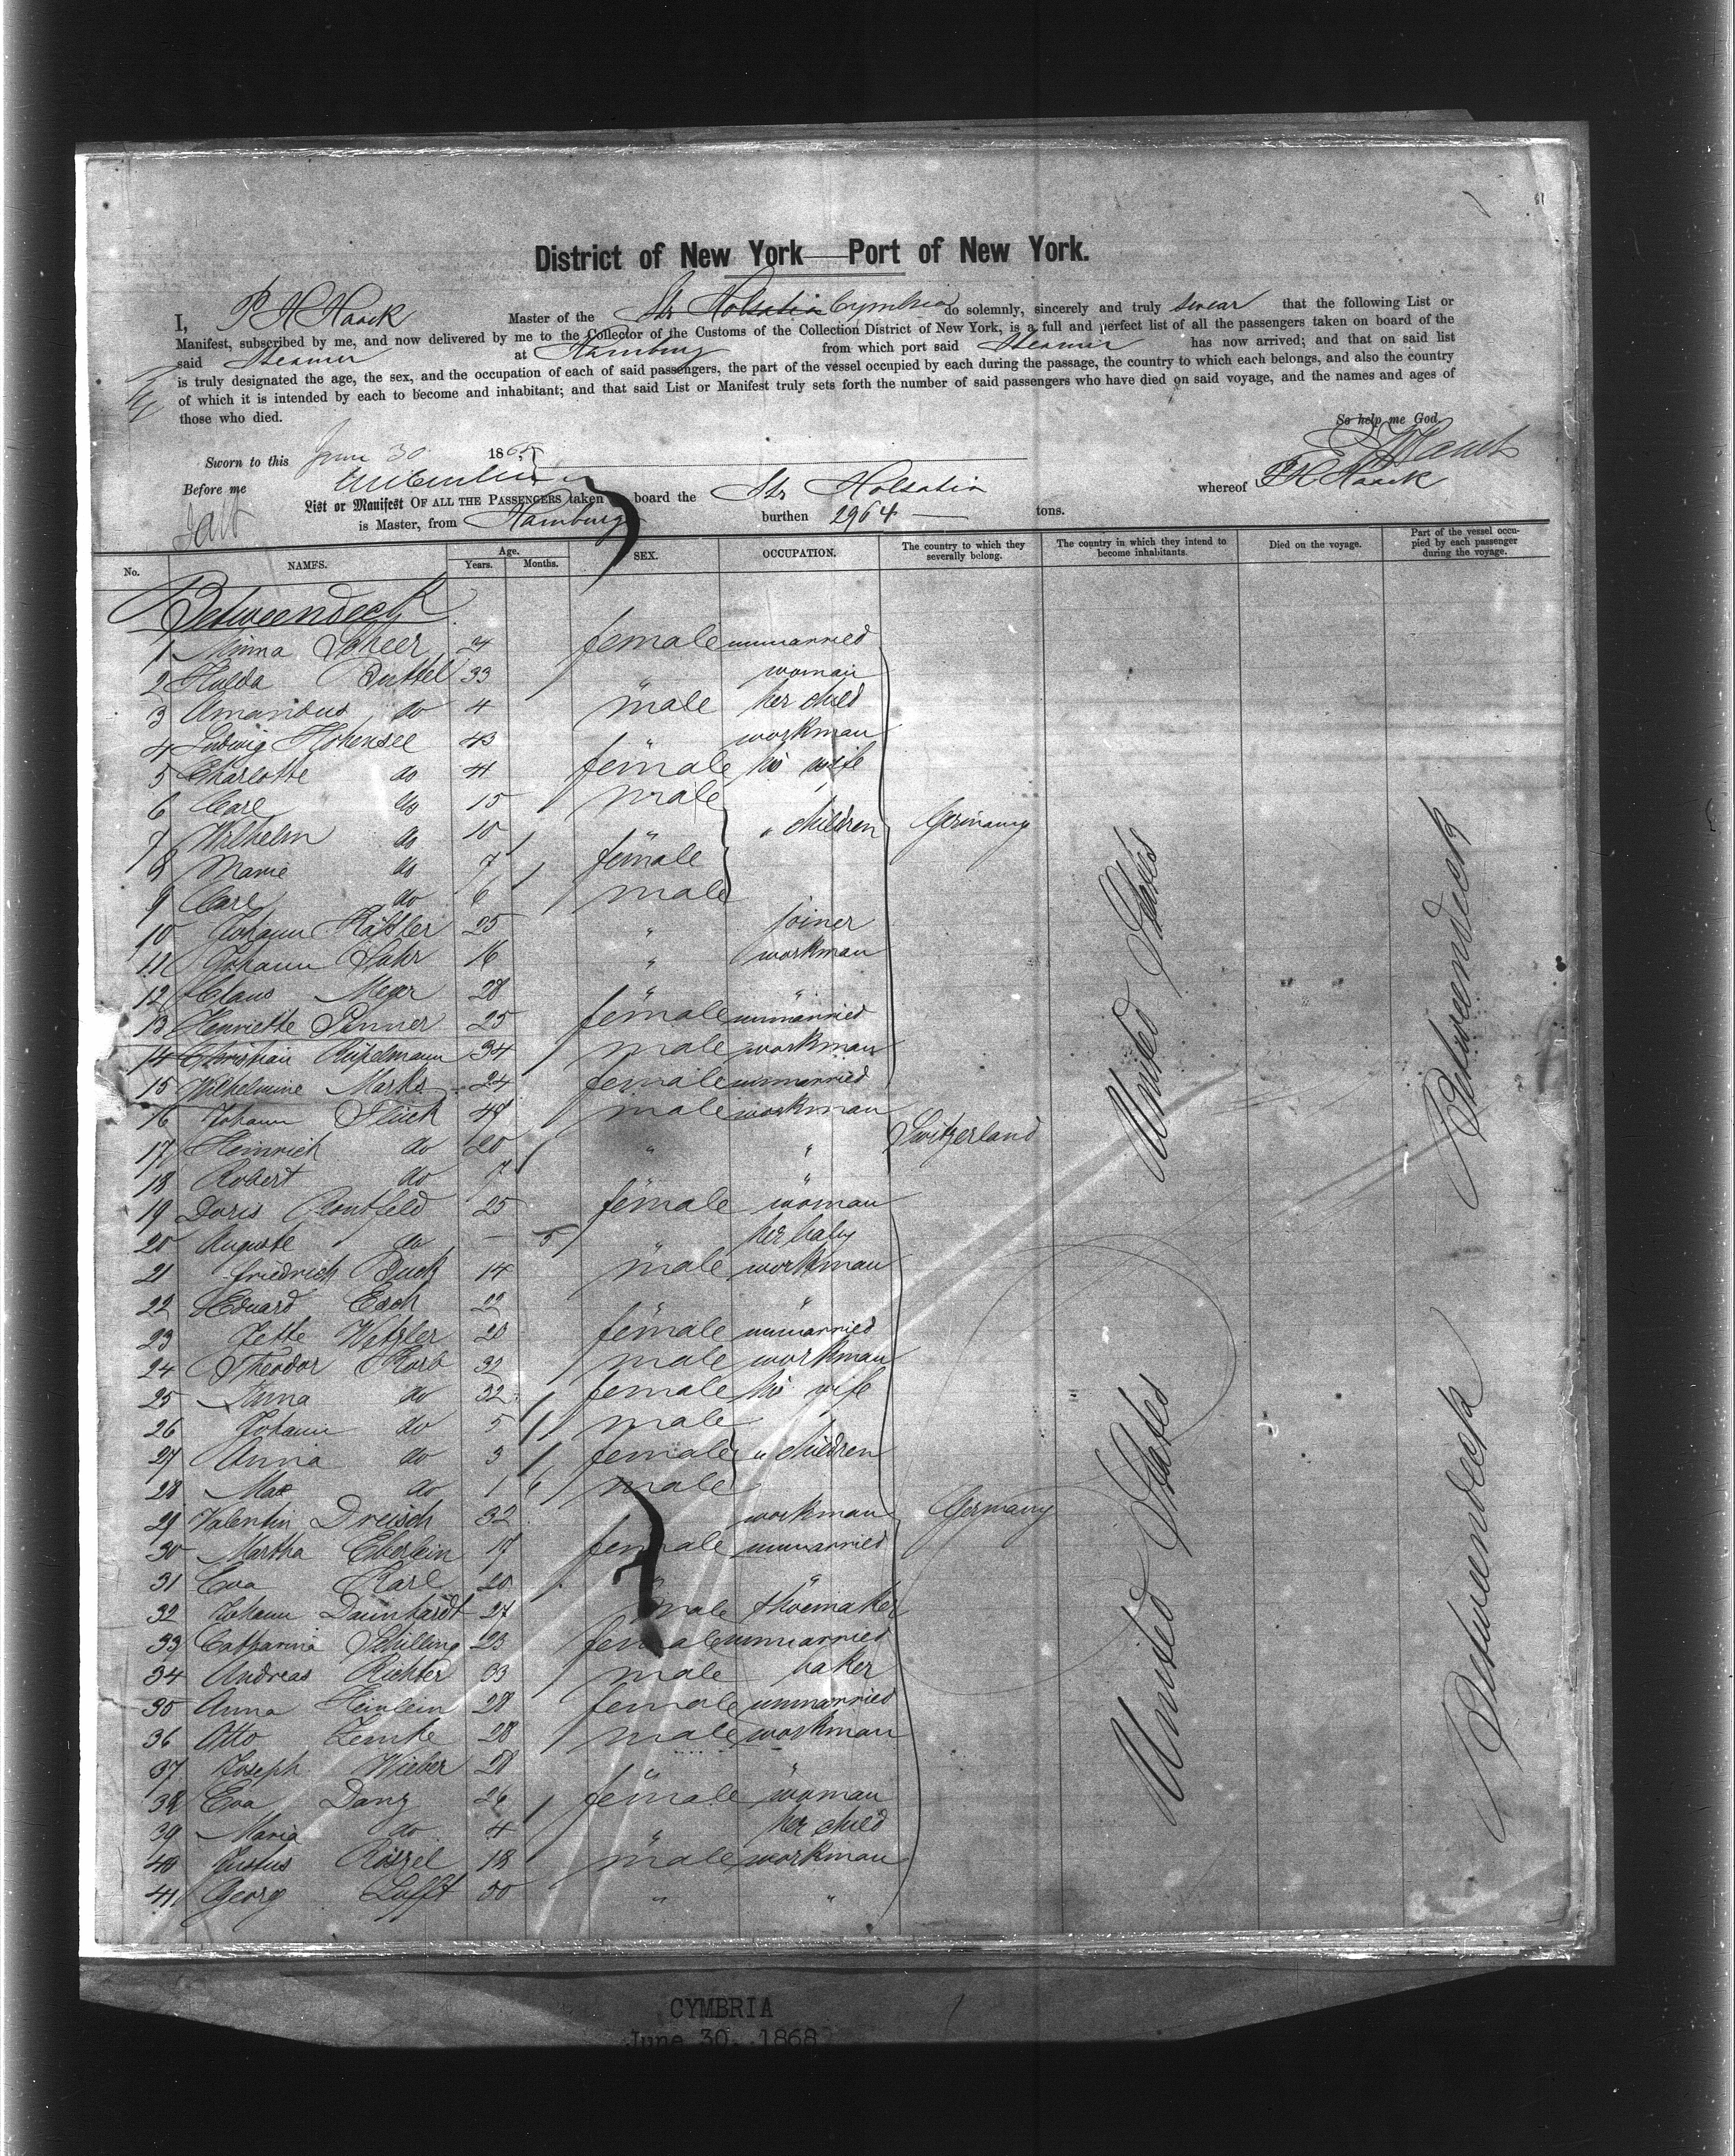 District of New York — Port of New York.
I, P. H. Haack Master of the Str Holsatia Cymbria do solemnly, sincerely and truly swear that the following List or
Manifest, subscribed by me, and now delivered by me to the Collector of the Customs of the Collection District of New York, is a full and perfect list of all the passengers taken on board of the
said Steamer at Hamburg from which port said Steamer has now arrived; and that on said list
is truly designated the age, the sex, and the occupation of each of said passengers, the part of the vessel occupied by each during the passage, the country to which each belongs, and also the country
of which it is intended by each to become and inhabitant; and that said List or Manifest truly sets forth the number of said passengers who have died on said voyage, and the names and ages of
those who died.
So help me God
Sworn to this June 30 186
Before me
List or Manifest OF ALL THE PASSENGERS taken board the Str Holsatia whereof P H Haack
is Master, from Hamburg burthen 2964 — tons.
No. NAMES. Age. Years. Months. SEX. OCCUPATION. The country to which they severally belong. The country in which they intend to become inhabitants. Died on the voyage. Part of the vessel occupied by each passenger during the voyage.
Betweendeck
1 Minna Scheer 24 female unmarried
2 Hulda Buttel 33 " woman
3 Amandus do 4 male her child
4 Ludwig Hohensee 43 " workman
5 Charlotte do 41 female his wife
6 Carl do 15 male
7 Wilhelm do 10 " " children Germany
8 Marie do 7 female
9 Carl do 6 male
10 Johann Käßler 25 " joiner
11 Johann Sahr 16 " workman
12 Claus Meyer 28 " "
13 Henriette Sinner 25 female unmarried
14 Christian 34 male workman
15 Wilhelmine Marks 24 female unmarried
16 Johann Stuck 48 male workman
17 Heinrich do 20 " " Switzerland
18 Robert do 7 " "
19 Doris Rontfeld 25 female woman
20 Auguste do — 5 " her baby
21 Friedrich Buck 14 male workman
22 Eduard Esch 22 " "
23 Jette Wetzler 20 female unmarried
24 Theodor Korb 32 male workman
25 Anna do 32 female his wife
26 Johann do 5 male
27 Anna do 3 female " children
28 Max do 1 6 male
29 Valentin Dreisch 32 workman Germany
30 Martha Eberlein 17 female unmarried
31 Eva Karl 20 " "
32 Johann Daunhardt 27 male shoemaker
33 Catharina Schilling 23 female unmarried
34 Andreas Richter 33 male baker
35 Anna Heinlein 28 female unmarried
36 Otto Lemke 28 male workman
37 Joseph Wieber 28 " "
38 Eva Danz 26 female woman
39 Maria do 4 " her child
40 Justus Rößel 18 male workman
41 Georg Lufft 50 " "
United States
United States
Betweendeck
Betweendeck
CYMBRIA
June 30, 1868